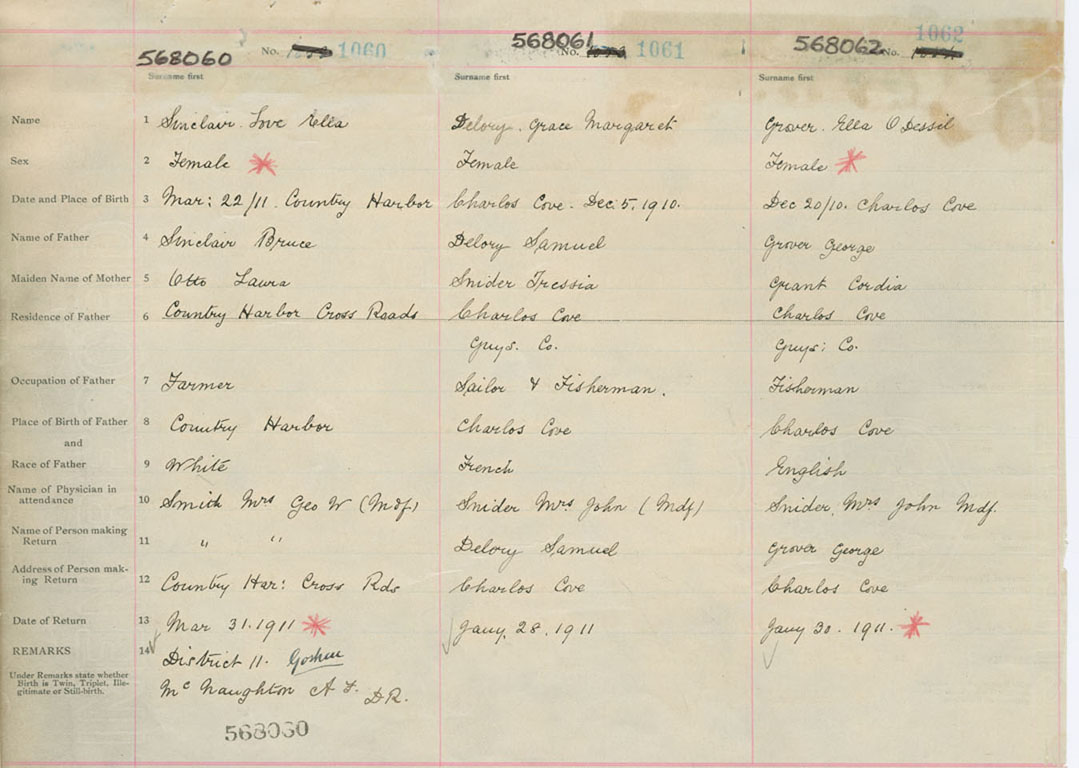 568060 No. 1060 568061 No. 1061 568062 No. 1062
Surname first Surname first Surname first
Name 1 Sinclair. Love Ella Delory. Grace Margaret Grover. Ella O Dessil
Sex 2 Female Female Female
Date and Place of Birth 3 Mar: 22/11. Country Harbor Charlos Cove. Dec. 5. 1910. Dec 20/10. Charlos Cove
Name of Father 4 Sinclair Bruce Delory Samuel Grover George
Maiden Name of Mother 5 Otto Laura Snider Tressia Grant Cordia
Residence of Father 6 Country Harbor Cross Roads Charlos Cove Charlos Cove
Guys. Co. Guys: Co.
Occupation of Father 7 Farmer Sailor & Fisherman. Fisherman
Place of Birth of Father 8 Country Harbor Charlos Cove Charlos Cove
and
Race of Father 9 White French English
Name of Physician in
attendance 10 Smith Mrs Geo W (Mdf) Snider Mrs John (Mdf) Snider, Mrs John Mdf.
Name of Person making
Return 11 " " Delory Samuel Grover George
Address of Person mak-
ing Return 12 Country Har: Cross Rds Charlos Cove Charlos Cove
Date of Return 13 Mar 31. 1911 Jany. 28. 1911 Jany 30. 1911.
REMARKS 14 District 11. Goshen
Under Remarks state whether
Birth is Twin, Triplet, Ille-
gitimate or Still-birth.
Mc Naughton A F. D.R.
568060